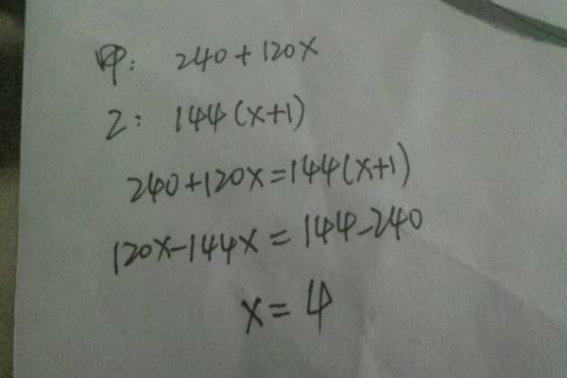 甲: 240+120x
乙: 144(x+1)
240+120x=144(x+1)
120x-144x=144-240
x=4